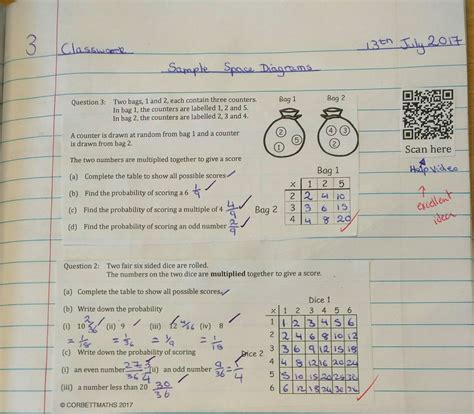 3 Classwork 13th July 2017
Sample Space Diagrams
Question 3: Two bags, 1 and 2, each contain three counters.
In bag 1, the counters are labelled 1, 2 and 5.
In bag 2, the counters are labelled 2, 3 and 4.
Bag 1 Bag 2
2 1 5
4 3 2
A counter is drawn at random from bag 1 and a counter
is drawn from bag 2.
The two numbers are multiplied together to give a score
(a) Complete the table to show all possible scores
(b) Find the probability of scoring a 6 1/9
(c) Find the probability of scoring a multiple of 4 4/9
(d) Find the probability of scoring an odd number 2/9
Bag 1
x 1 2 5
Bag 2
2 2 4 10
3 3 6 15
4 4 8 20
Scan here
Help Video
excellent
idea
Question 2: Two fair six sided dice are rolled.
The numbers on the two dice are multiplied together to give a score.
(a) Complete the table to show all possible scores
(b) Write down the probability
(i) 10 2/36 (ii) 9 (iii) 12 4/36 (iv) 8
= 1/18 = 1/36 = 1/9 = 1/18
(c) Write down the probability of scoring
(i) an even number 27/36 3/4 (ii) an odd number 9/36 = 1/4
(iii) a number less than 20 30/36
Dice 1
x 1 2 3 4 5 6
Dice 2
1 1 2 3 4 5 6
2 2 4 6 8 10 12
3 3 6 9 12 15 18
4 4 8 12 16 20 24
5 5 10 15 20 25 30
6 6 12 18 24 30 36
© CORBETTMATHS 2017